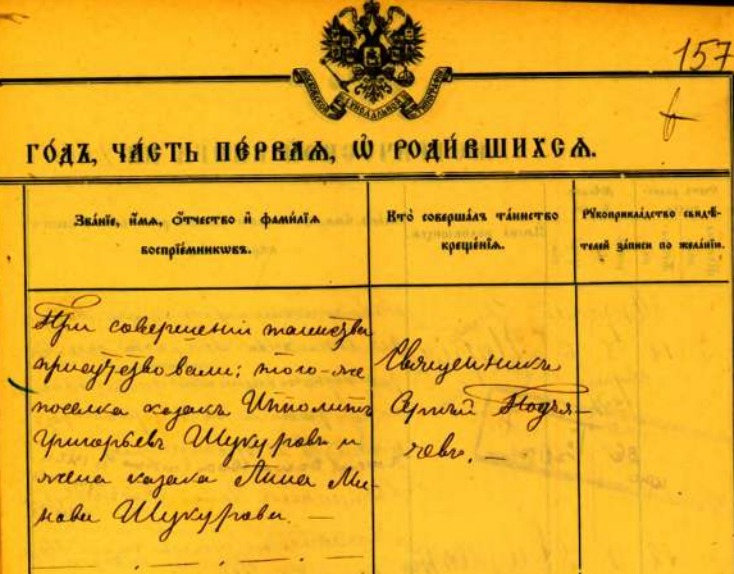 157
МОСКОВСКОЙ СѴНОДАЛЬНОЙ ТИПОГРАФІИ
ГО́ДЪ, ЧА́СТЬ ПЕ́РВАѦ, Ѽ РОДИ́ВШИХСѦ.
Зва́нїе, и҆́мѧ, ѻ҆́тчество и҆ фами́лїѧ
воспрїе́мникѡвъ.
Кто̀ соверша́лъ та́инство
креще́нїѧ.
Рꙋкоприкла́дство свидѣ́-
телей за́писи по жела́нїю.
При совершеніи таинства
присутствовали: того-же
поселка казакъ Ипполитъ
Григорьевъ Шукуровъ и
жена казака Анна Ми-
нова Шукурова. —
Священникъ
Сергій Подъя-
чевъ. —